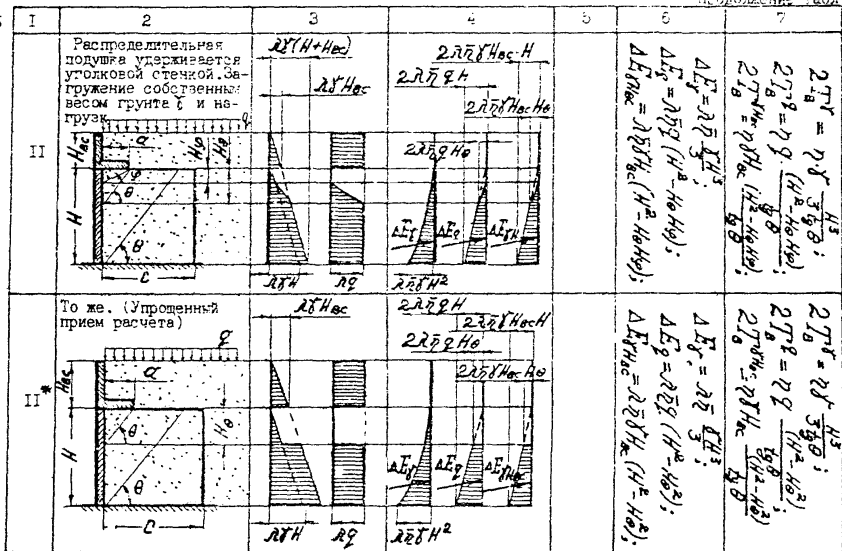 I 2 3 4 5 6 7
II
Распределительная
подушка удерживается
уголковой стенкой. За-
гружение собственным
весом грунта γ и на-
грузк q
a
Hвс
H
Hφ
Hθ
φ
θ
θ
C
λγ(H+Hвс)
λγHвс
λγH
λq
2λη̄γHвс·H
2λη̄qH
2λη̄γHвсHθ
2λη̄qHθ
ΔEγ
ΔEq
ΔEγH
λη̄γH²
ΔEγ = λη̄ γH³/3;
ΔEq = λη̄q (H²-HθHφ);
ΔEγHвс = λη̄γHвс (H²-HθHφ);
2Tᵧ/B = ηγ H³/3tgθ;
2Tq/B = ηq (H²-HθHφ)/tgθ;
2TγHвс/B = ηγHвс (H²-HθHφ)/tgθ;
II*
То же. (Упрощенный
прием расчета)
q
a
Hвс
H
Hθ
θ
θ
C
λγHвс
λγH
λq
2λη̄qH
2λη̄γHвсH
2λη̄qHθ
2λη̄γHвсHθ
ΔEγ
ΔEq
ΔEγHвс
λη̄γH²
ΔEγ = λη̄ γH³/3;
ΔEq = λη̄q (H²-Hθ²);
ΔEγHвс = λη̄γHвс (H²-Hθ²);
2Tγ/B = ηγ H³/3tgθ;
2Tq/B = ηq (H²-Hθ²)/tgθ;
2TγHвс/B = ηγHвс (H²-Hθ²)/tgθ